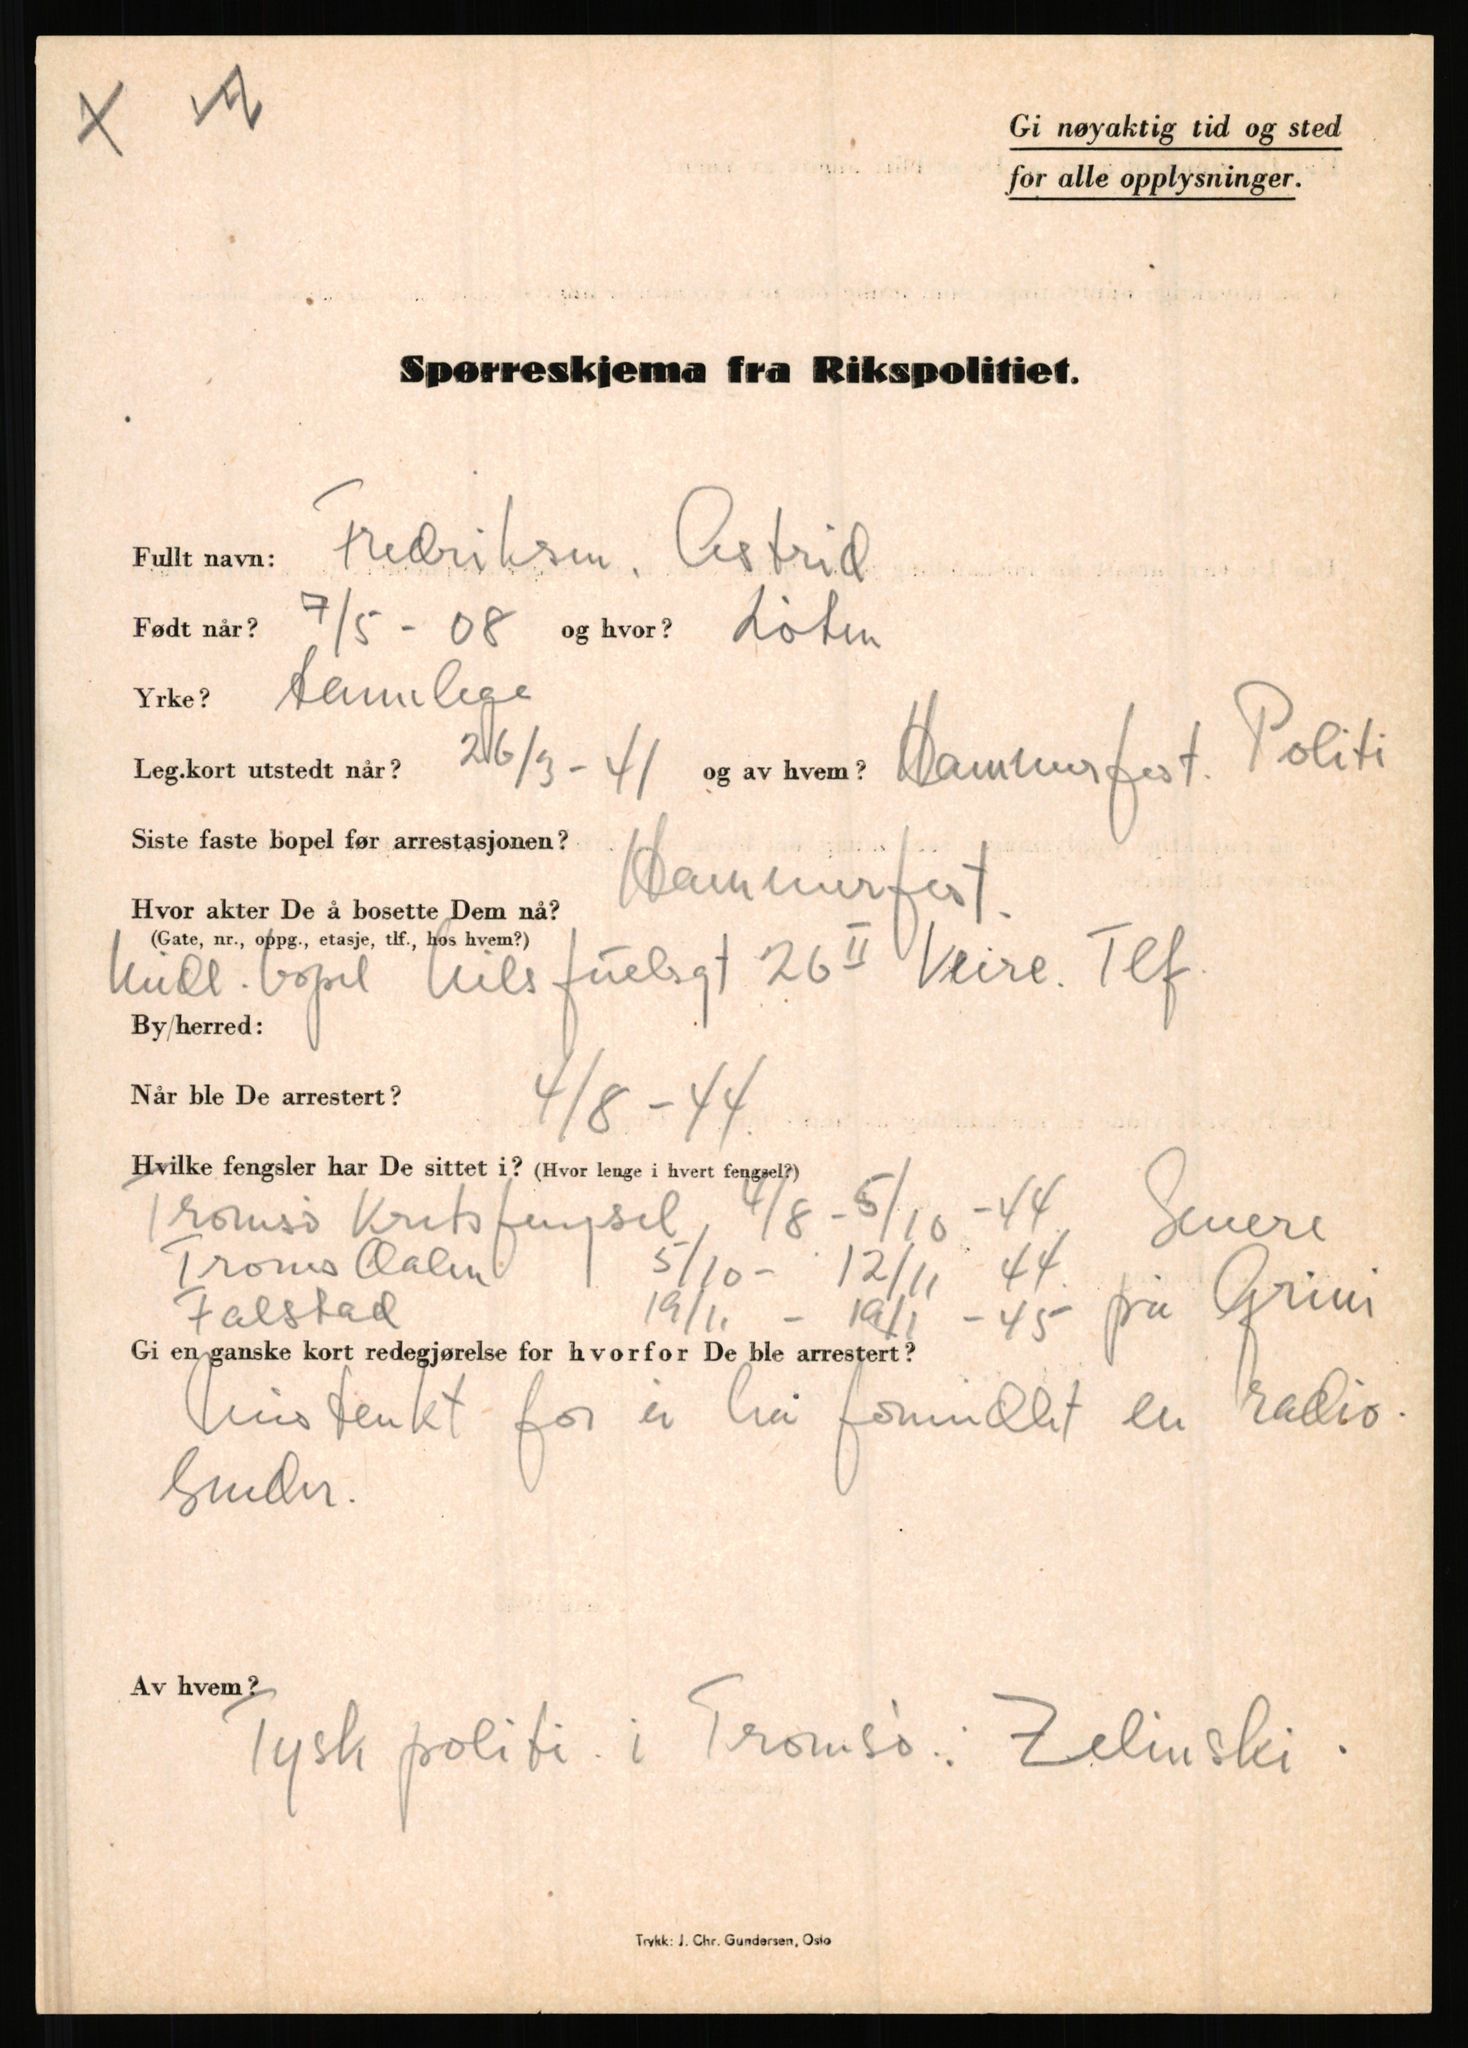 Gi nøyaktig tid og sted
for alle opplysninger.
Spørreskjema fra Rikspolitiet.
Fullt navn: Fredriksen, Astrid
Født når? 7/5 - 08 og hvor? Løten
Yrke? tannlege
Leg.kort utstedt når? 26/3 - 41 og av hvem? Hammerfest. Politi
Siste faste bopel før arrestasjonen? Hammerfest.
Hvor akter De å bosette Dem nå?
(Gate, nr., oppg., etasje, tlf., hos hvem?)
Midl. bopel Nils Juelsgt 26 II Tlf.
By/herred:
Når ble De arrestert? 4/8 - 44.
Hvilke fengsler har De sittet i? (Hvor lenge i hvert fengsel?)
Tromsø Kretsfengsel, 4/8 - 5/10 - 44. Senere
Tromsdalen 5/10 - 12/11 44. på Grini
Falstad 19/11 - 19/1 - 45
Gi en ganske kort redegjørelse for hvorfor De ble arrestert?
Mistenkt for å ha formidlet en radio-
sender.
Av hvem?
Tysk politi i Tromsø: Zelinski.
Trykk: J. Chr. Gundersen, Oslo